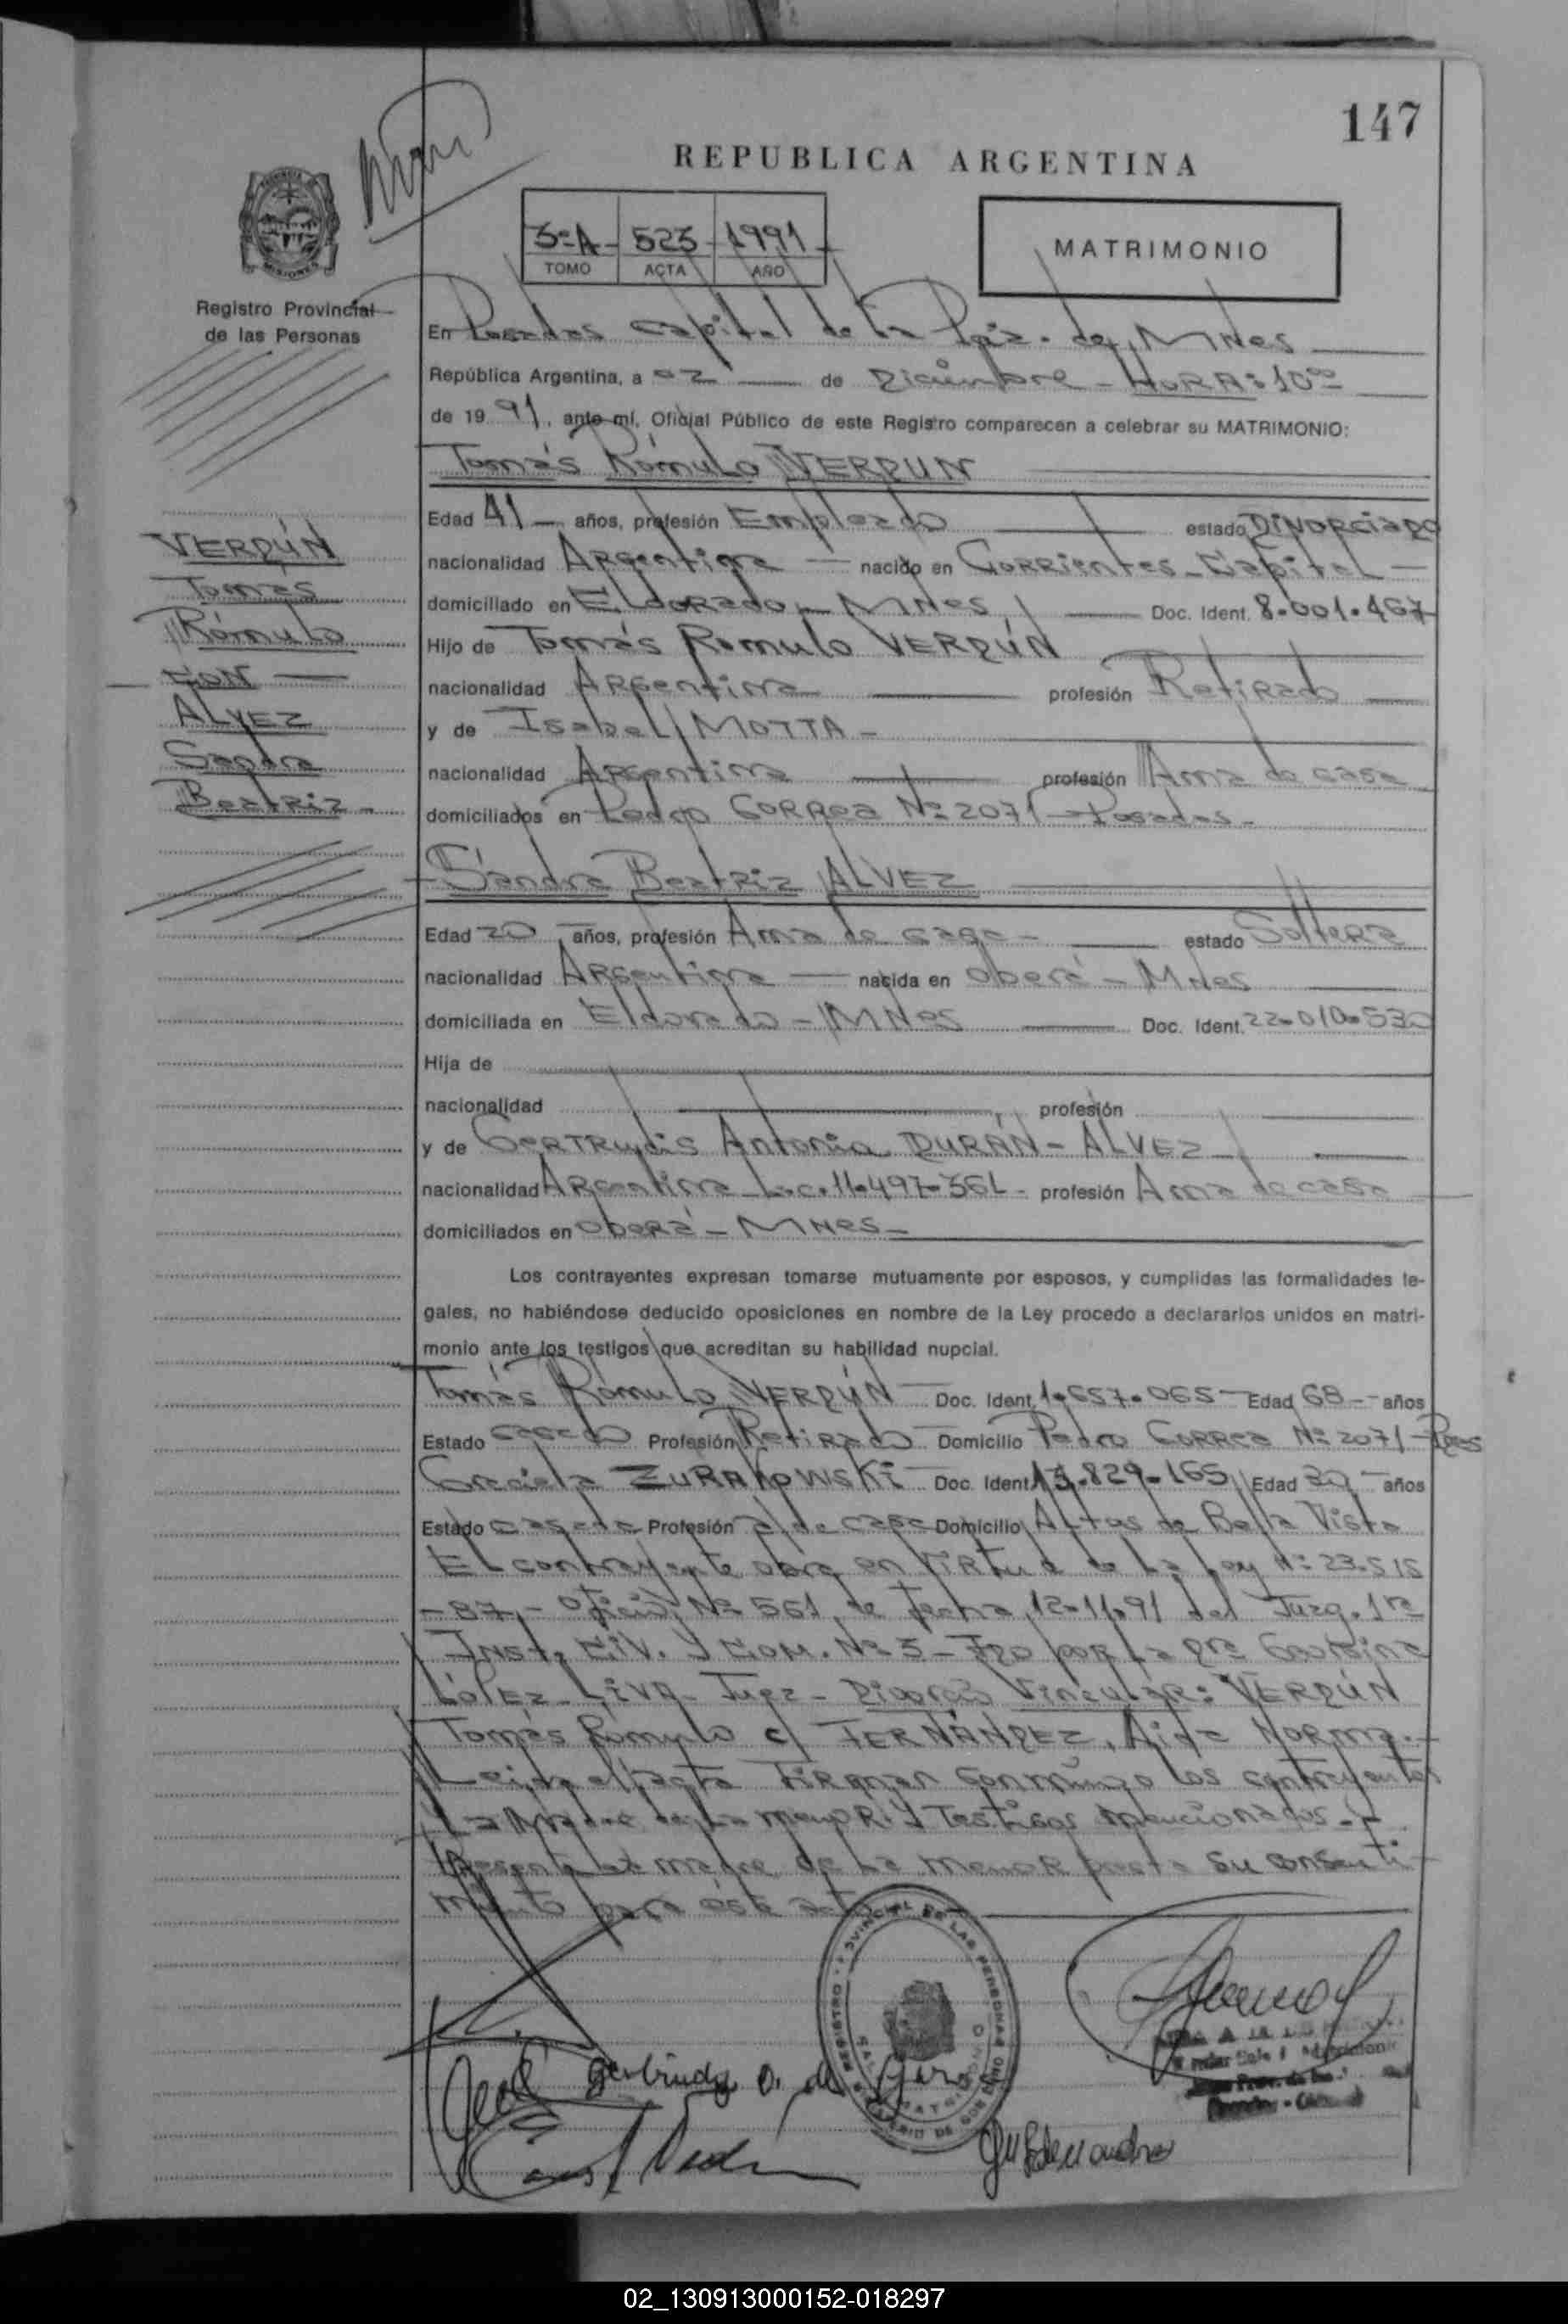 147
REPUBLICA ARGENTINA
3º A - 523 - 1991
TOMO ACTA AÑO
MATRIMONIO
Registro Provincial
de las Personas
En Posadas Capital de la Pcia. de MNes
República Argentina, a 02 de Diciembre - HORA: 10⁰⁰
de 1991, ante mí, Oficial Público de este Registro comparecen a celebrar su MATRIMONIO:
Tomás Rómulo VERDUN
Edad 41 años, profesión Empleado estado DIVORCIADO
nacionalidad Argentina nacido en Corrientes - Capital
domiciliado en ELDORADO - MNes Doc. Ident. 8.001.467
Hijo de Tomás Romulo VERDÚN
nacionalidad Argentina profesión Retirado
y de Isabel MOTTA -
nacionalidad Argentina profesión Ama de casa
domiciliados en Pedro Correa Nº 2071 - Posadas -
VERDÚN
Tomás
Rómulo
CON
ALVEZ
Sandra
Beatriz -
Sandra Beatriz ALVEZ
Edad 20 años, profesión Ama de casa - estado Soltera
nacionalidad Argentina nacida en Oberá - MNes
domiciliada en Eldorado - MNes Doc. Ident. 22.010.530
Hija de
nacionalidad profesión
y de Gertrudis Antonia DURÁN - ALVEZ
nacionalidad Argentina L.c. 11.497.361 - profesión Ama de casa
domiciliados en Oberá - MNes -
Los contrayentes expresan tomarse mutuamente por esposos, y cumplidas las formalidades le-
gales, no habiéndose deducido oposiciones en nombre de la Ley procedo a declararlos unidos en matri-
monio ante los testigos que acreditan su habilidad nupcial.
Tomás Rómulo VERDÚN Doc. Ident. 1.657.065 Edad 68 años
Estado casado Profesión Retirado Domicilio Pedro Correa Nº 2071 - Pdas
Graciela ZURAKOWSKI Doc. Ident. 13.829.165 Edad 30 años
Estado casada Profesión a. de casa Domicilio Altos de Bella Vista
El contrayente obra en virtud de la Ley Nº 23.515
- 87 - Oficio Nº 561 de fecha 12-11-91 del Juzg. 1ra
Inst. CIV. y COM. Nº 3 - Fdo por la Dra
LÓPEZ - LEIVA - Juez - Divorcio Vincular: VERDÚN
Tomás Rómulo c/ FERNÁNDEZ, Aida Norma. -
Leída el acta firman conmigo los contrayentes
La Madre de la menor y Testigos mencionados. -
Presente la madre de la menor presta su consenti-
miento para éste acto
REGISTRO PROVINCIAL DE LAS PERSONAS
02_130913000152-018297